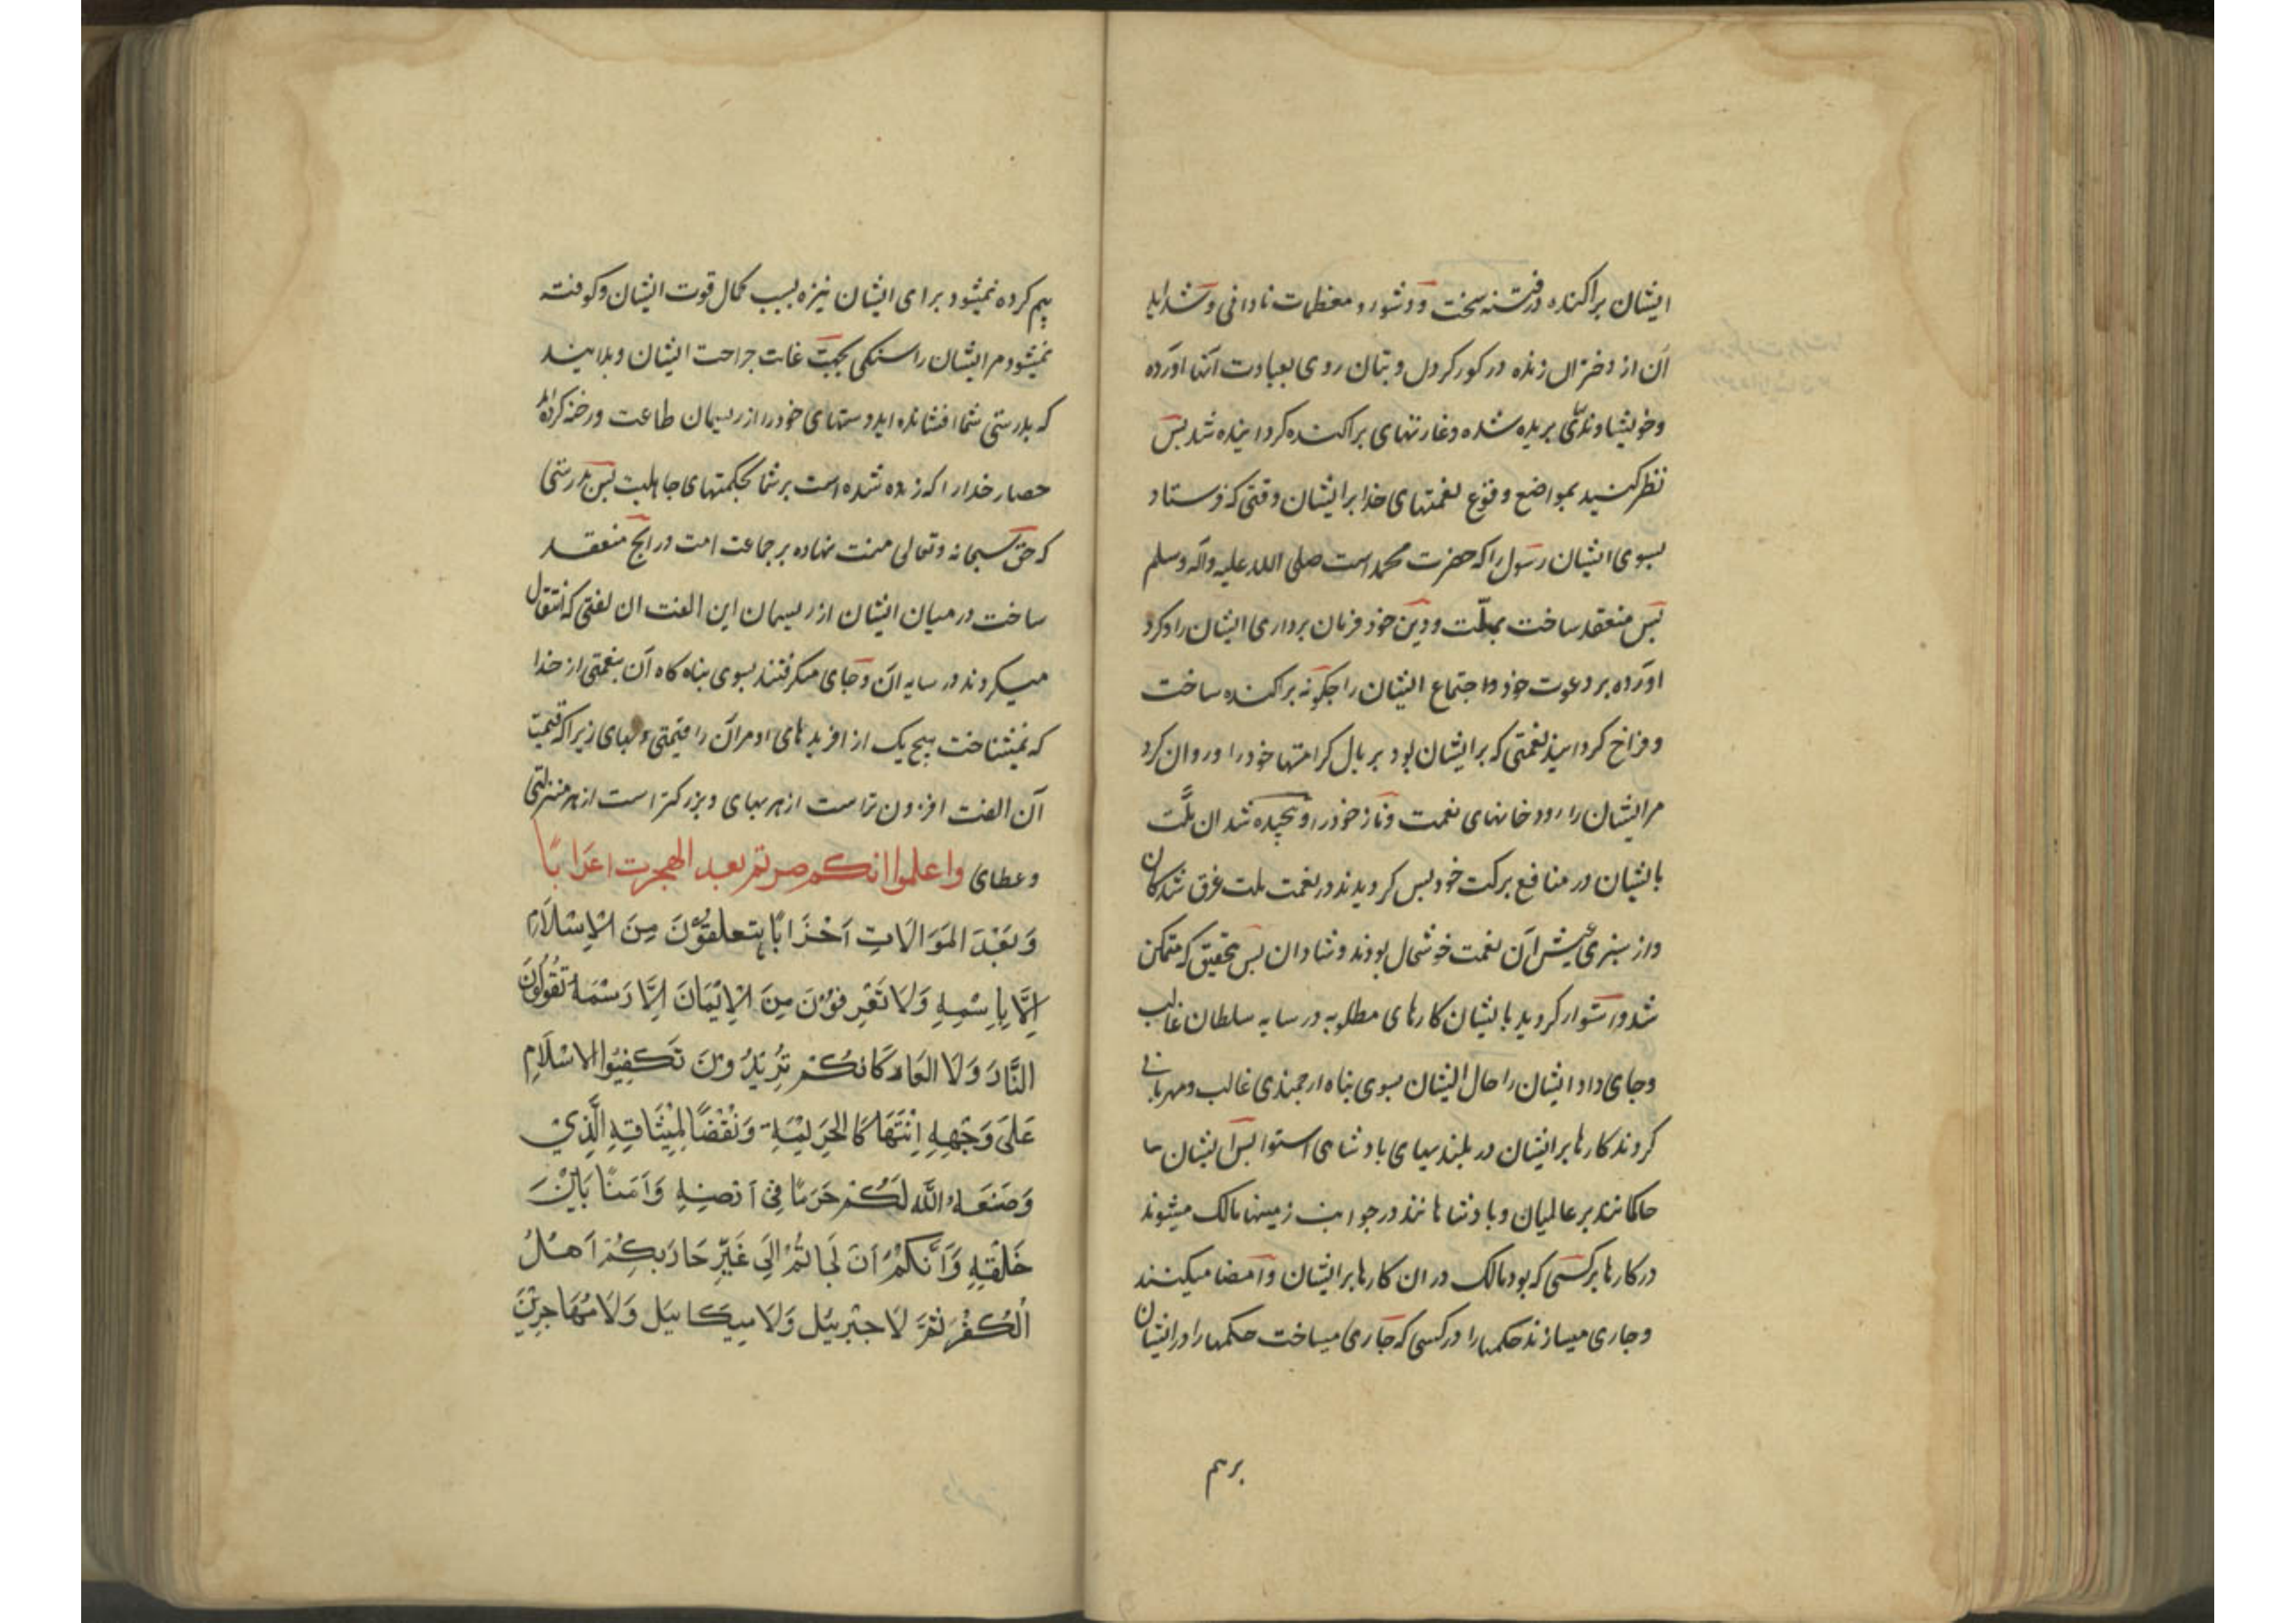 ایشان پراکنده در فتنه سخت و دشوار و معظمات نادانی و شداید
آن از دختران زنده در کور کردن و بتان روی بعبادت آنها آورده
و خویشاوندی بریده شده و غارتهای پراکنده کردانیده شد پس
نظر کنید بمواضع وقوع نعمتهای خدا بر ایشان وقتی که فرستاد
بسوی ایشان رسول را که حضرت محمد است صلی الله علیه وآله وسلم
پس منعقد ساخت بملّت و دین خود فرمان برداری ایشان را و کرد
آورده بر دعوت خود اجتماع ایشان را چکونه پراکنده ساخت
و فراخ کردانید نعمتی که بر ایشان بود پر بال کرامتها خود را و روان کرد
مر ایشان را رود خانهای نعمت و ناز خود را و پیچیده شد ان ملّت
بایشان در منافع برکت خود پس کردیدند در نعمت ملت غرق شدکان
و از سبزی عیش آن نعمت خوشحال بودند و شادان پس بتحقیق که متمکن
شد و استوار کردید بایشان کارهای مطلوبه در سایه سلطان غالب
و جای داد ایشان را حال ایشان بسوی پناه ارجمندی غالب و مهربانی
کردند کارها بر ایشان در بلندیهای پادشاهی استوا پس ایشان
حاکمانند بر عالمیان و پادشاهانند در جوانب زمینها مالک میشوند
در کارها بر کسی که بود مالک در ان کارها بر ایشان و امضا میکنند
و جاری میسازند حکمها را در کسی که جاری میساخت حکمها را در ایشان
برهم
پیم کرده نمیشود برای ایشان نیزه بسبب کمال قوت ایشان و کوفته
نمیشود مر ایشان را سنکی بجهت غایت جراحت ایشان و بدانید
که بدرستی شما افشانده اید دستهای خود را از ریسمان طاعت و رخنه کرده اید
حصار خدا را که زده شده است بر شما بحکمتهای جاهلیت پس بدرستی
که حق سبحانه و تعالی منت نهاده بر جماعت امت در آنچ منعقد
ساخت در میان ایشان از ریسمان این الفت ان لفتی که انتقال
میکردند در سایه ان و جای میکرفتند بسوی پناه کاه آن بنعمتی از خدا
که نمیشناخت هیچ یک از افریدهای او مر آن را قیمتی و بهای زیرا که قیمت
آن الفت افزون تر است از هر بهای و بزرکتر است از هر منزلتی
و عطای واعلموا انکم صرتم بعد الهجرت اعرابًا
وَبَعْدَ المَوَالَاتِ اَحْزَابًا یتعلقون مِنَ الْاِسْلَام
اِلَّا بِاِسْمِهِ وَلَا تَعْرِفُوْنَ مِنَ الْاِیْمَانَ اِلَّا رَسْمَهُ تَقُوْلُوْنَ
النَّارَ وَلَا العَارَ کَانکُمْ تُرِیْدُوْنَ تَکفِیُوا الاسْلَامِ
عَلیَ وَجْهِهِ اِنْتَهَا کَا لِحَرِیْمِهِ وَنَقْضًا لِمِیْثَاقِهِ الَّذِیْ
وَضَعَهُ اللّٰه لَکُمْ حَرَمًا فِیْ اَرْضِهِ وَاَمَنًا بَیْنَ
خَلْقِهِ وَاَنَّکُمْ اَنَ لَجَاتُمْ اِلَی غَیْرِ حَارَبکُمْ اَهْلُ
الْکُفْرِ ثمَّ لَا جبْرئیل وَلَا میکائیل وَلَا مُهَاجِرِیْنَ